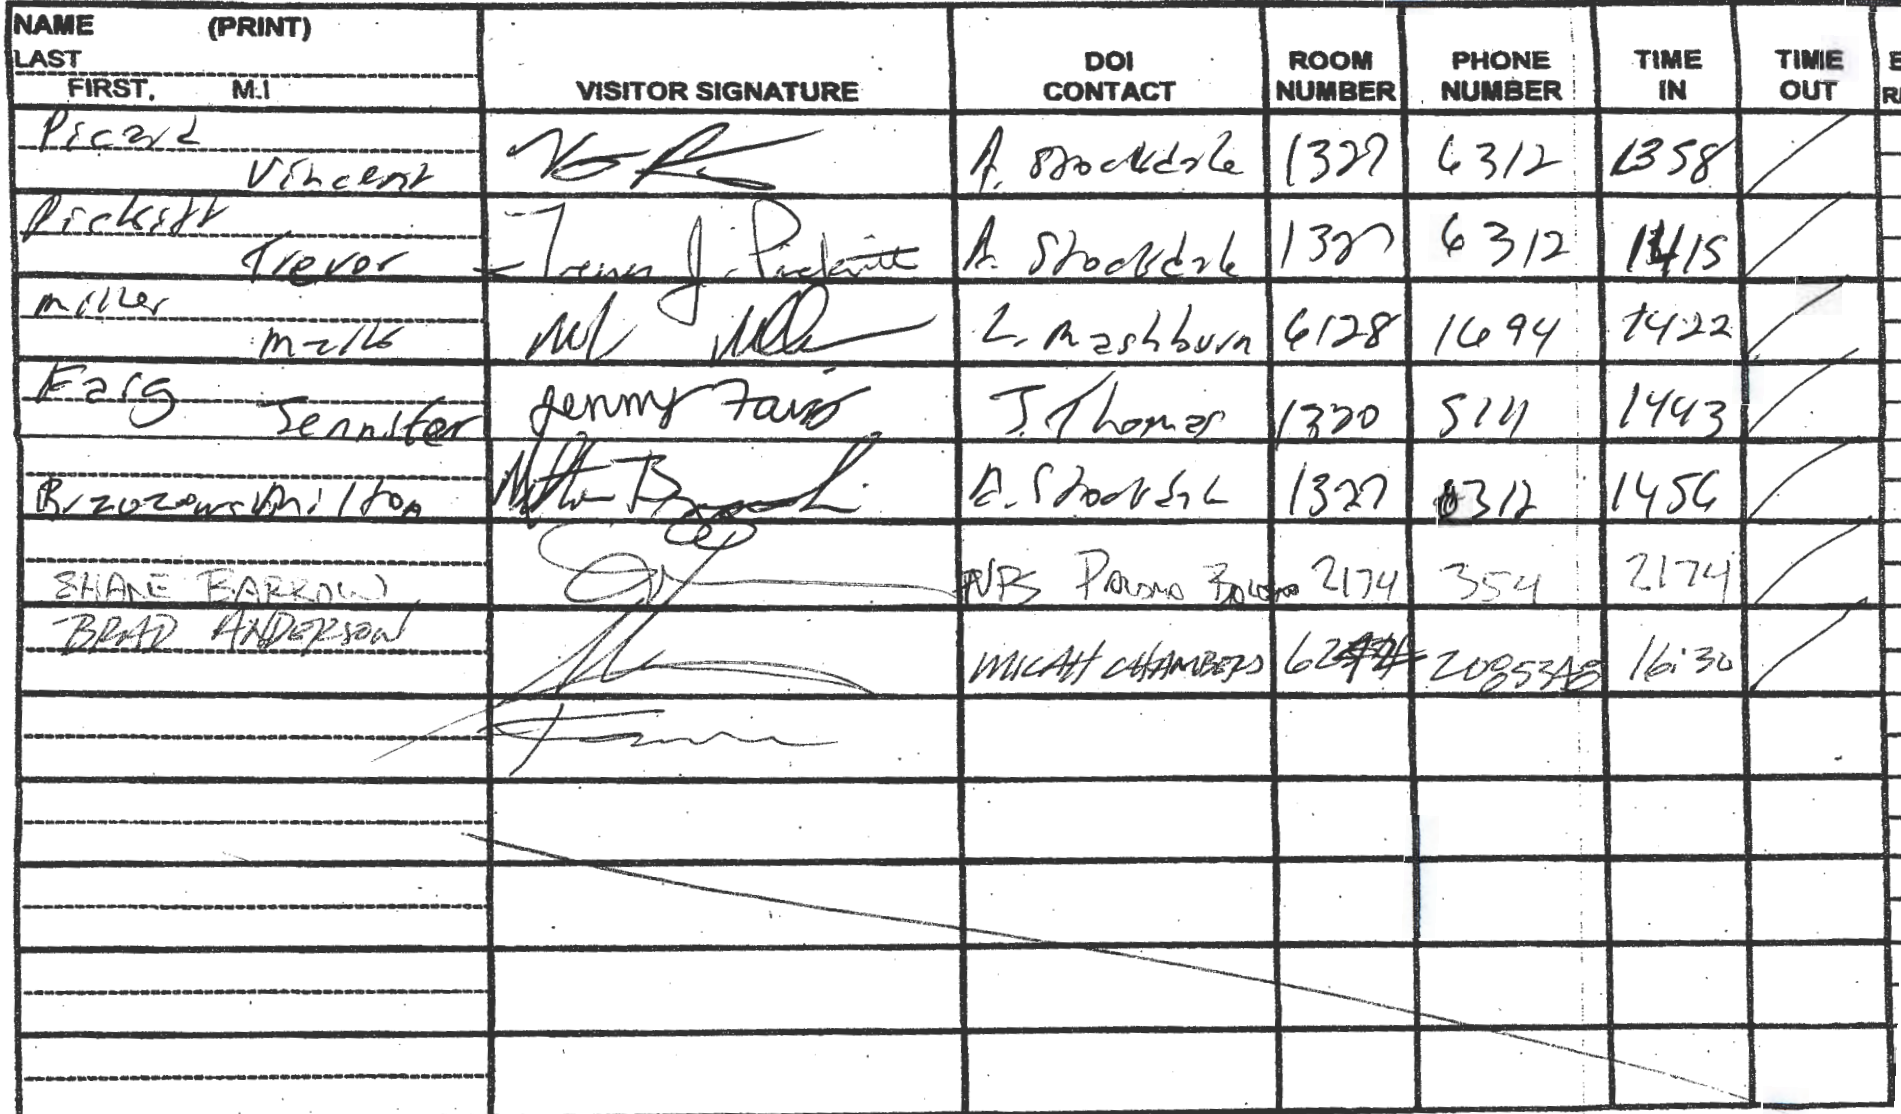 NAME (PRINT)
LAST
FIRST, M.I
VISITOR SIGNATURE
DOI CONTACT
ROOM NUMBER
PHONE NUMBER
TIME IN
TIME OUT
Picard
Vincent
A. Stockdale 1327 6312 1358
Pickitt
Trevor
Trevor J. Pickitt
A. Stockdale 1327 6312 1415
Miller
Mark
L. Mashburn 6128 1694 1422
Farg
Jennifer
Jenny
J. Thomas 1320 1443
Milton
A. Stockdale 1327 6312 1456
SHANE BARROW
NPS 2174 354 2174
BRAD ANDERSON
MICAH CHAMBERS 16:30